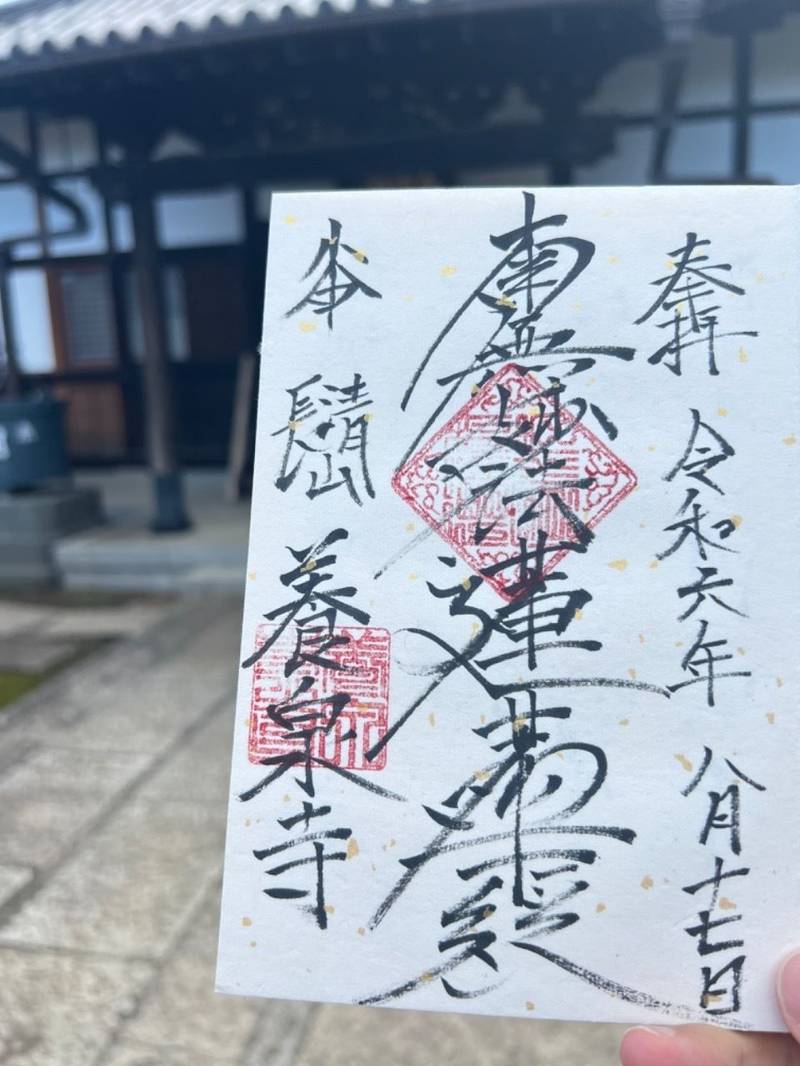 奉拝 令和六年 八月十七日
南無妙法蓮華經
本 長清山 養泉寺